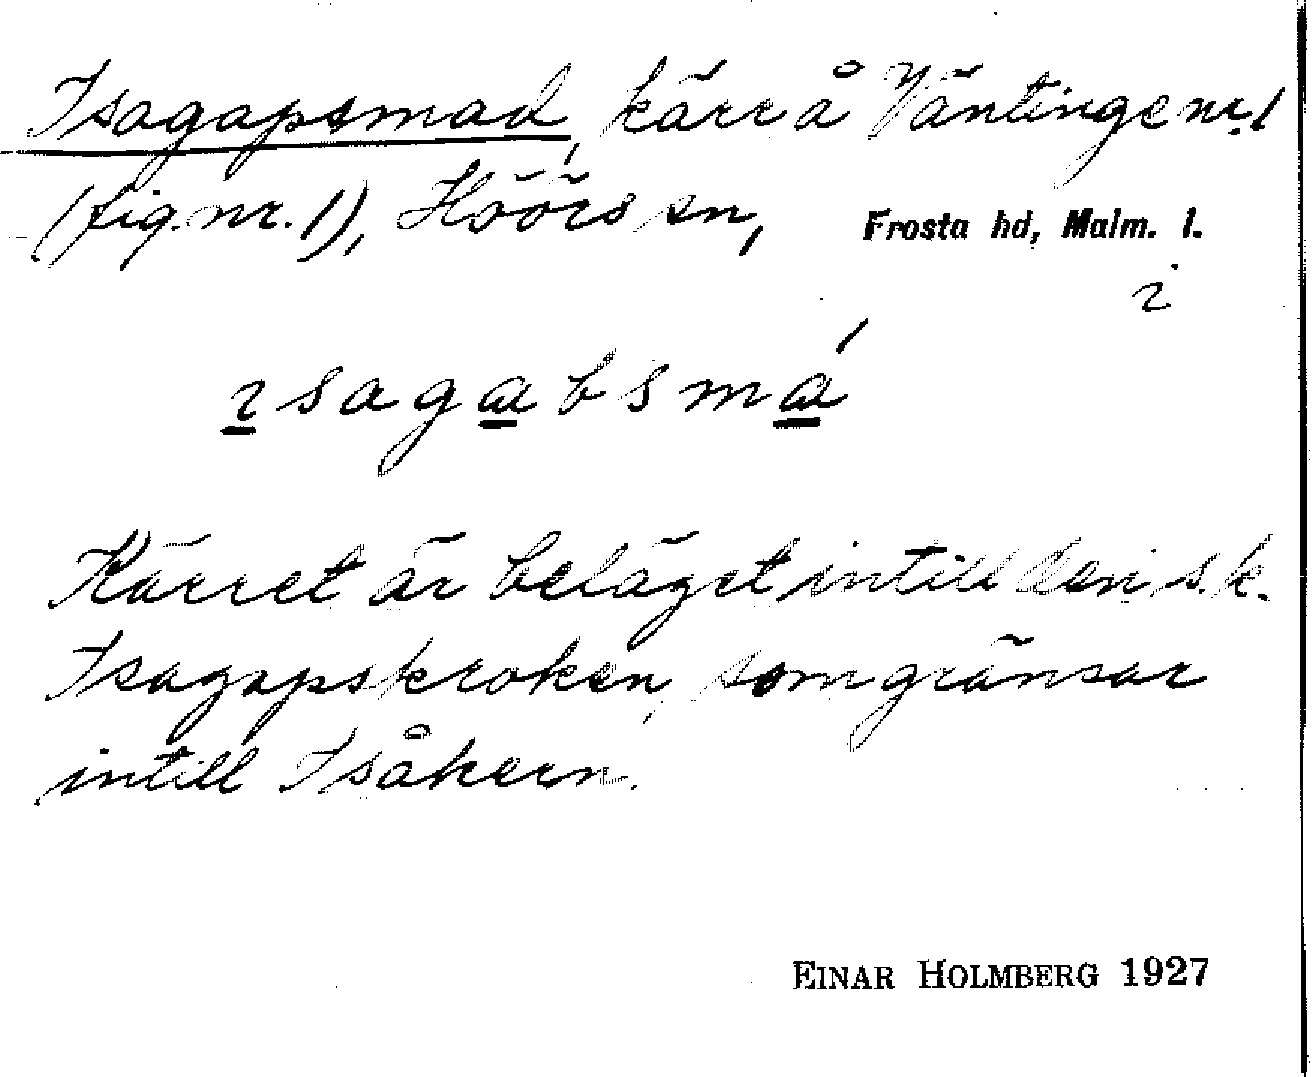 Isagapsmad, kärr å Väntinge nr. 1
(fig. nr. 1), Höörs sn, Frosta hd, Malm. l.
i
ısagabsmá
Kärret är beläget intill den s.k.
Isagapskroken, som gränsar
intill Isåkern.
EINAR HOLMBERG 1927